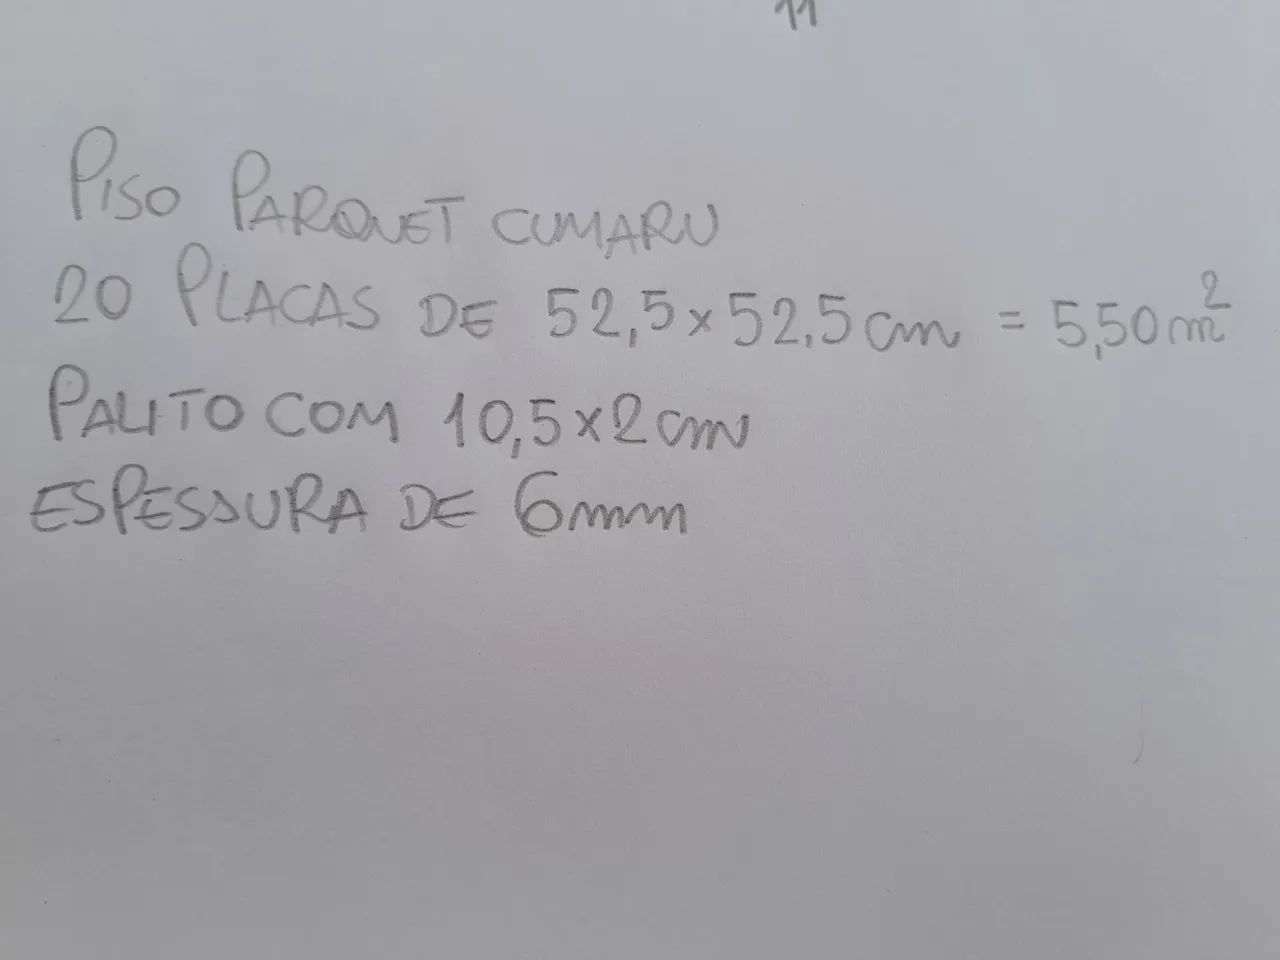 11
PISO PARQUET CUMARU
20 PLACAS DE 52,5 x 52,5 cm = 5,50 m²
PALITO COM 10,5 x 2 cm
ESPESSURA DE 6mm